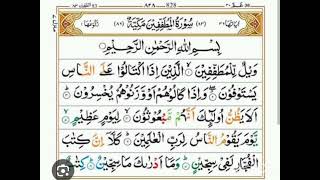 ٨٤٨ 828
سُوْرَةُ الْمُطَفِّفِيْنَ مَكِّيَّةٌ
بِسْمِ اللهِ الرَّحْمٰنِ الرَّحِيْمِ
وَيْلٌ لِّلْمُطَفِّفِيْنَ ۙ الَّذِيْنَ اِذَا اكْتَالُوْا عَلَى النَّاسِ
يَسْتَوْفُوْنَ ۖ وَاِذَا كَالُوْهُمْ اَوْ وَّزَنُوْهُمْ يُخْسِرُوْنَ ۗ
اَلَا يَظُنُّ اُولٰٓئِكَ اَنَّهُمْ مَّبْعُوْثُوْنَ ۙ لِيَوْمٍ عَظِيْمٍ ۙ
يَّوْمَ يَقُوْمُ النَّاسُ لِرَبِّ الْعٰلَمِيْنَ ۗ كَلَّآ اِنَّ كِتٰبَ
الْفُجَّارِ لَفِيْ سِجِّيْنٍ ۗ وَمَآ اَدْرٰىكَ مَا سِجِّيْنٌ ۗ كِتٰبٌ